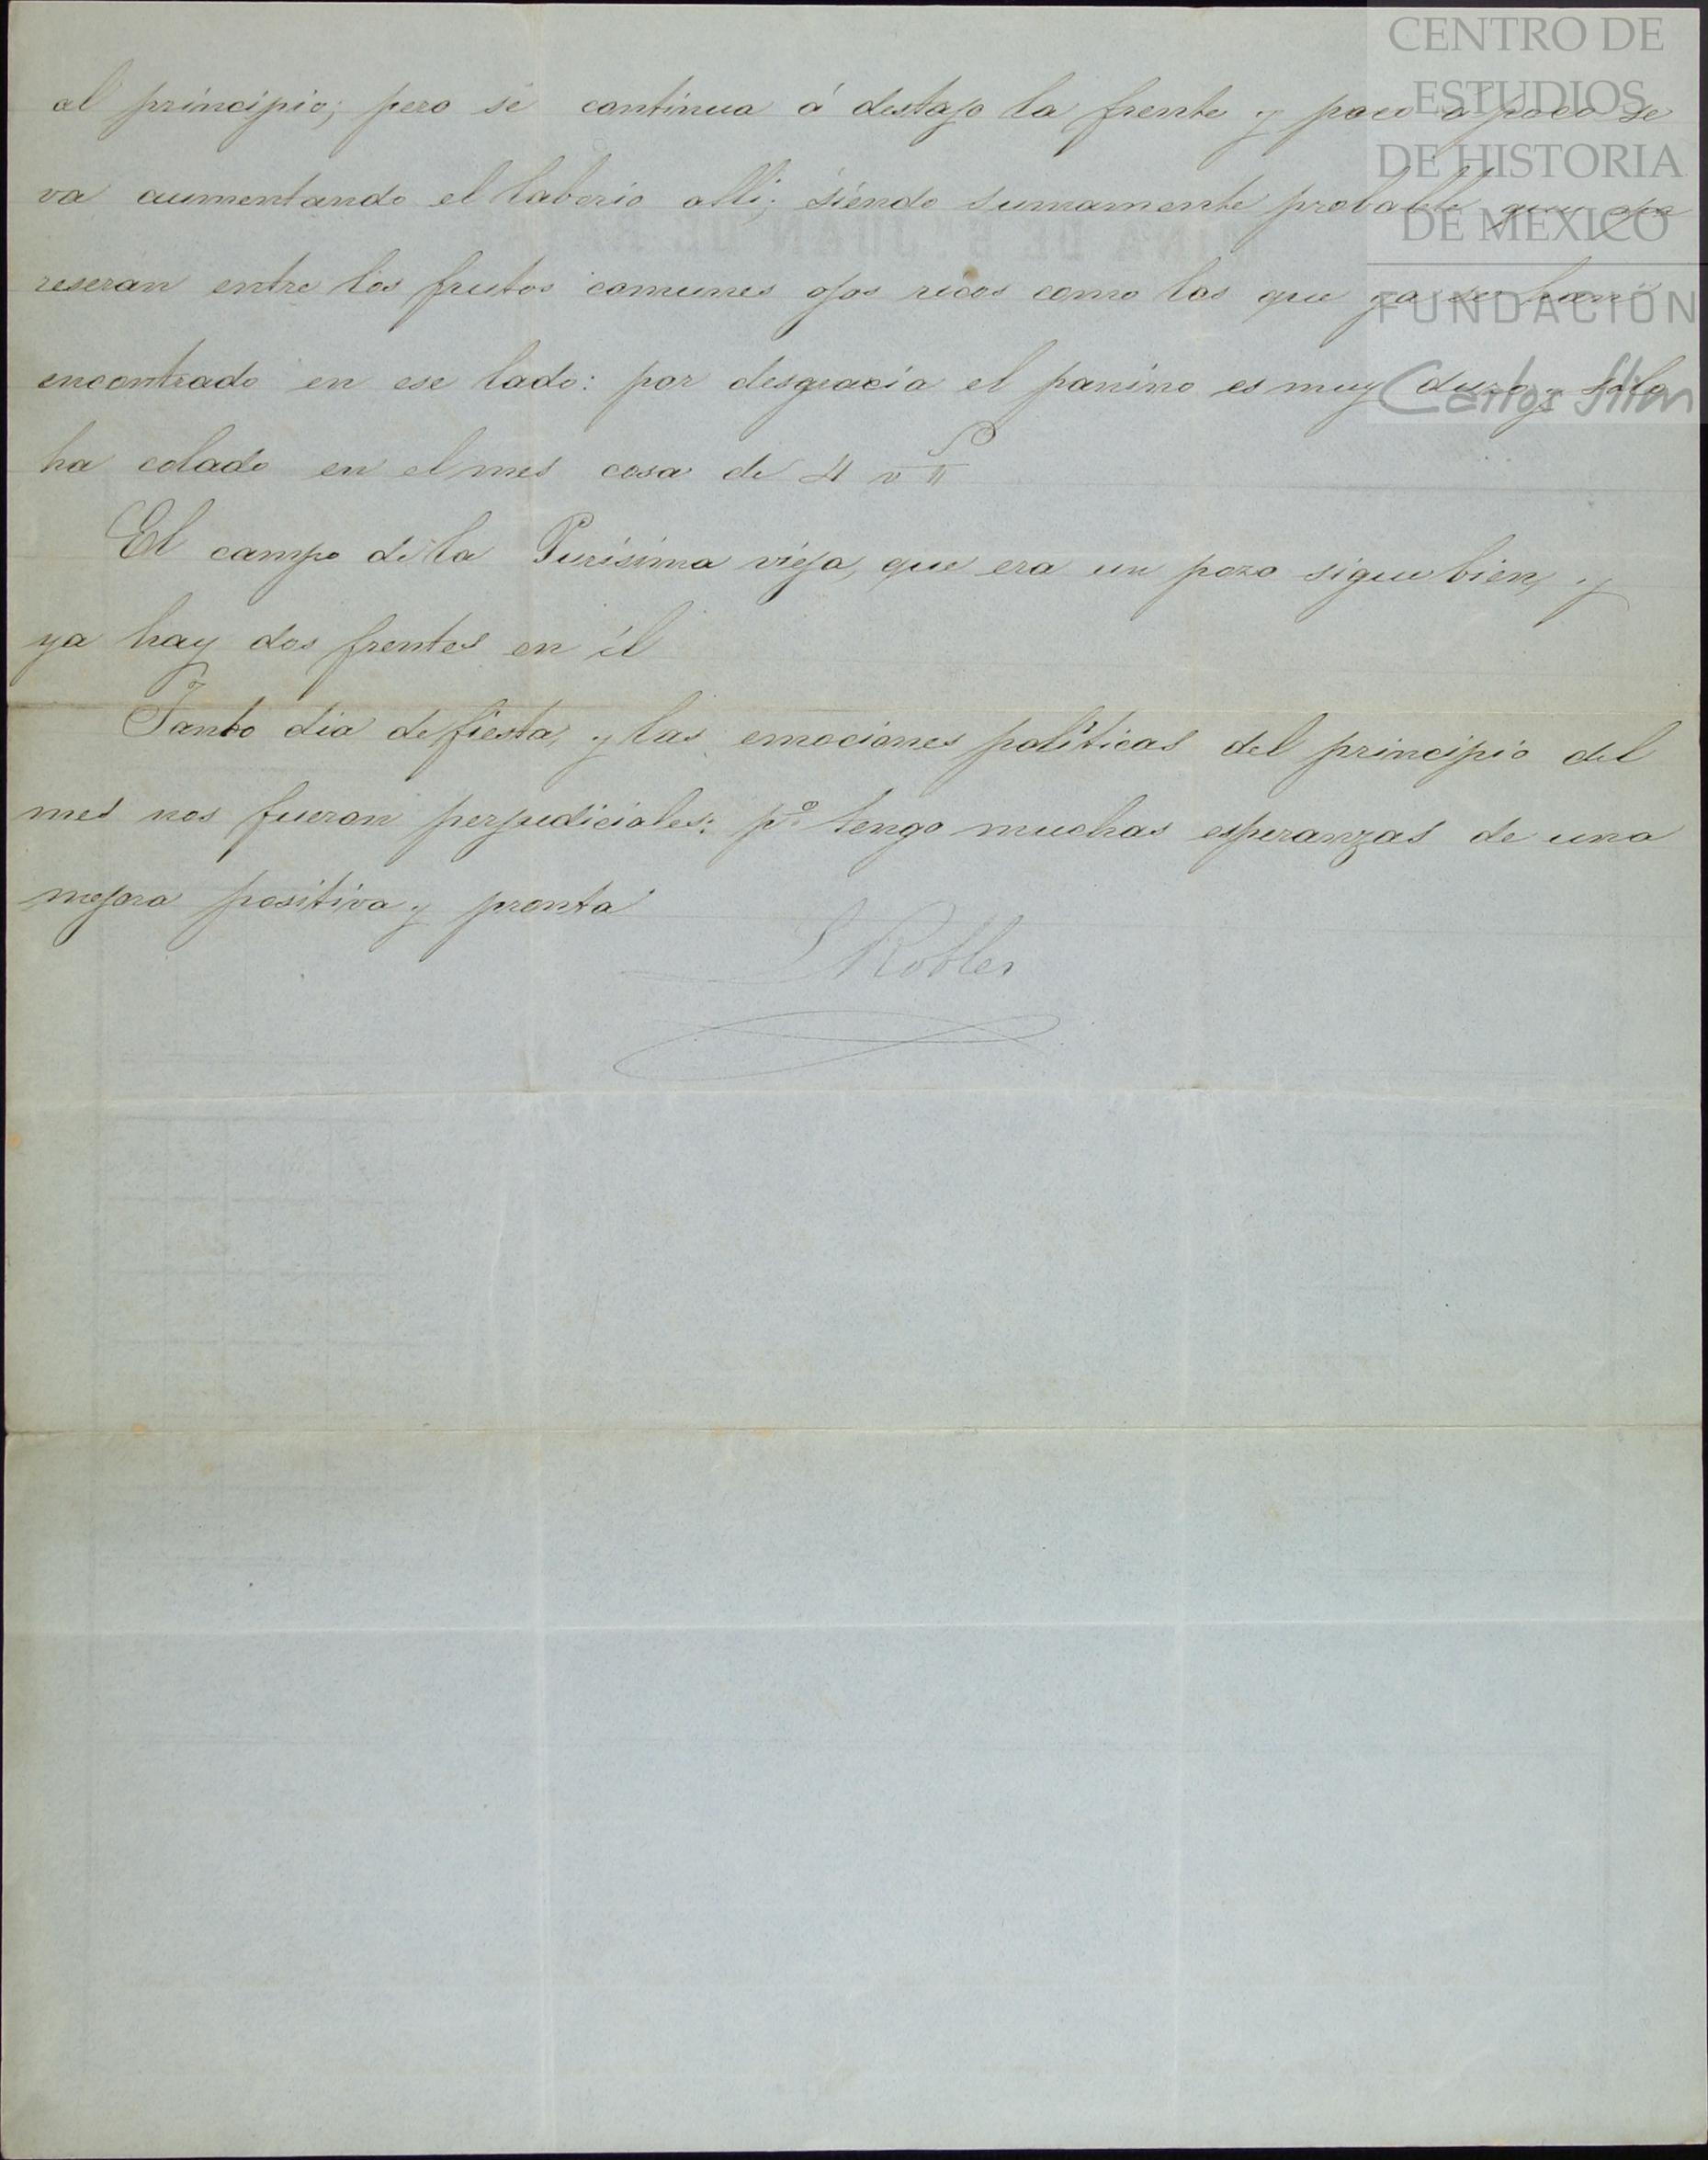 al principio; pero se continua á destajo la frente y poco a poco se
va aumentando el laborío alli; siendo sumamente probable que apa
reseran entre los frutos comunes ojos ricos como los que ya se han
encontrado en ese lado: por desgracia el panino es muy duro y solo
ha colado en el mes cosa de 4 v
El campo de la Purísima vieja, que era un pozo sigue bien, y
ya hay dos frentes en él
Tanto dia de fiesta, y las emociones políticas del principio del
mes nos fueron perjudiciales: pº tengo muchas esperanzas de una
mejora positiva y pronta
S Robles
CENTRO DE
ESTUDIOS
DE HISTORIA
DE MEXICO
FUNDACIÓN
Carlos Slim